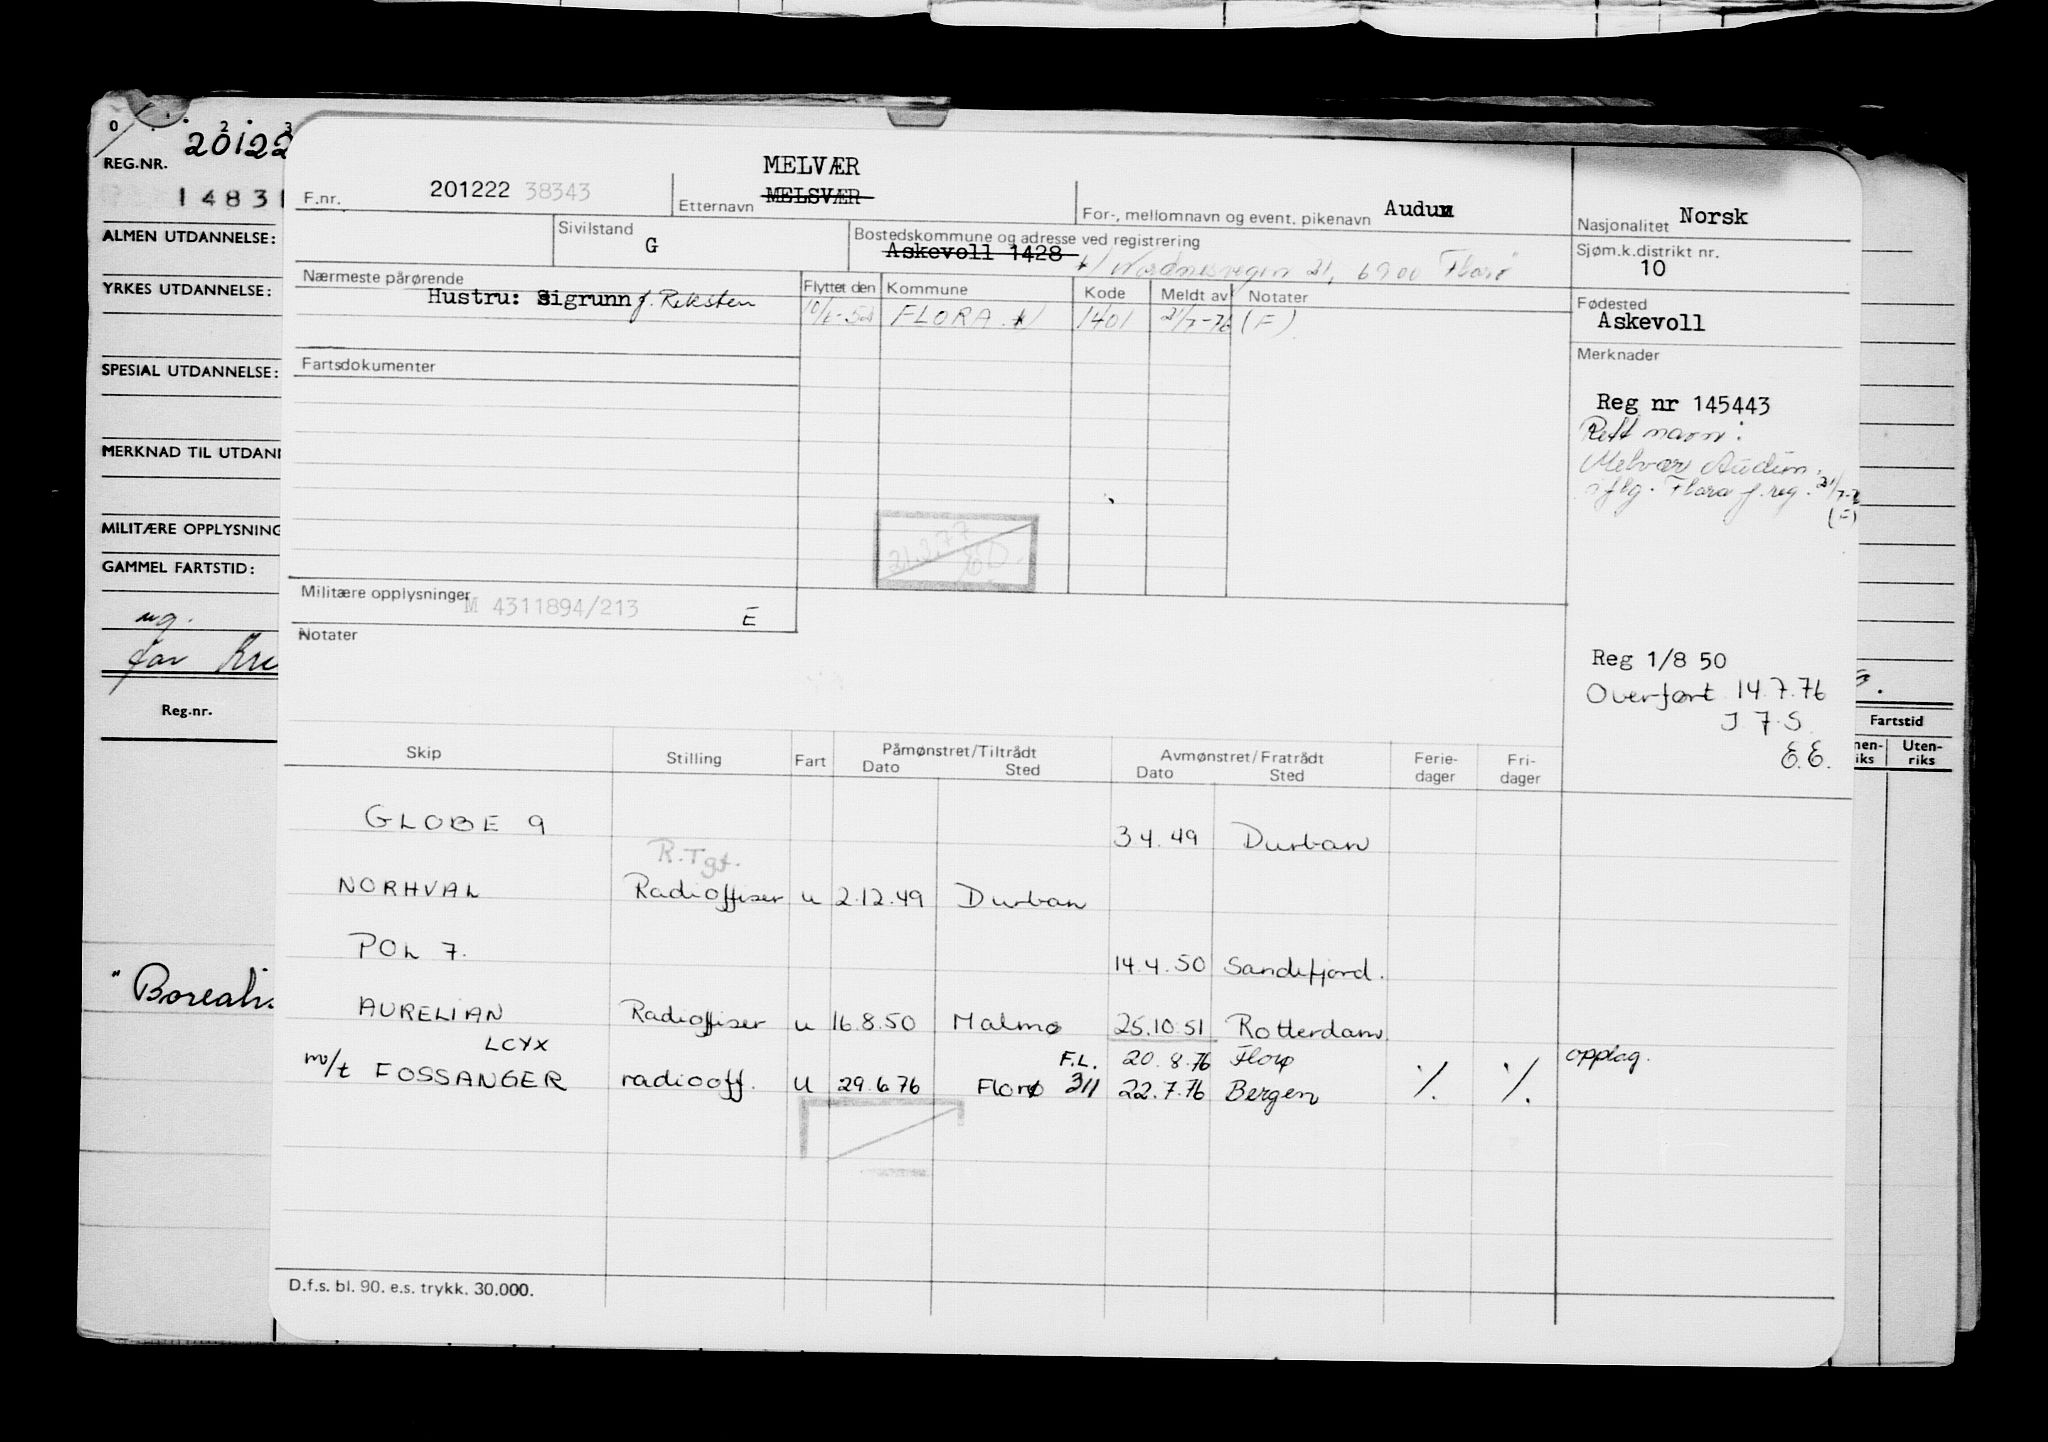 REG.NR. 20122
14831
ALMEN UTDANNELSE:
YRKES UTDANNELSE:
SPESIAL UTDANNELSE:
MERKNAD TIL UTDAN
MILITÆRE OPPLYSNING
GAMMEL FARTSTID:
ug.
for
Reg.nr.
"Boreali
MELVÆR
F.nr. 201222 38343 Etternavn MELSVÆR For-, mellomnavn og event. pikenavn Audun Nasjonalitet Norsk
Sivilstand G Bostedskommune og adresse ved registrering Askevoll 1428 Nordnesvegen 21, 6900 Florø Sjøm.k.distrikt nr. 10
Nærmeste pårørende Hustru: Sigrunn f. Reksten
Flyttet den Kommune Kode Meldt av Notater
FLORA 1401 21/7-76 (F)
Fødested Askevoll
Fartsdokumenter
Merknader
Reg nr 145443
Rett navn:
Melvær Audun.
iflg. Flora f.reg. 21/7-76
(F)
21.2.77
Militære opplysninger M 4311894/213 E
Notater
Reg 1/8 50
Overført 14.7.76
J 7 S.
E.E.
Fartstid
Uten-
riks
Skip Stilling Fart Påmønstret/Tiltrådt Dato Sted Avmønstret/Fratrådt Dato Sted Ferie-dager Fri-dager
GLOBE 9 3 4. 49 Durban
R.Tgt.
NORHVAL Radioffiser u 2.12.49 Durban
POL 7. 14.4.50 Sandefjord.
AURELIAN Radioffiser u 16.8.50 Malmø 25.10.51 Rotterdam
LCYX F.L. 20.8.76 Florø opplag.
m/t FOSSANGER radiooff. U 29.6.76 Florø 311 22.7.76 Bergen ./. ./.
D.f.s. bl. 90. e.s. trykk. 30.000.